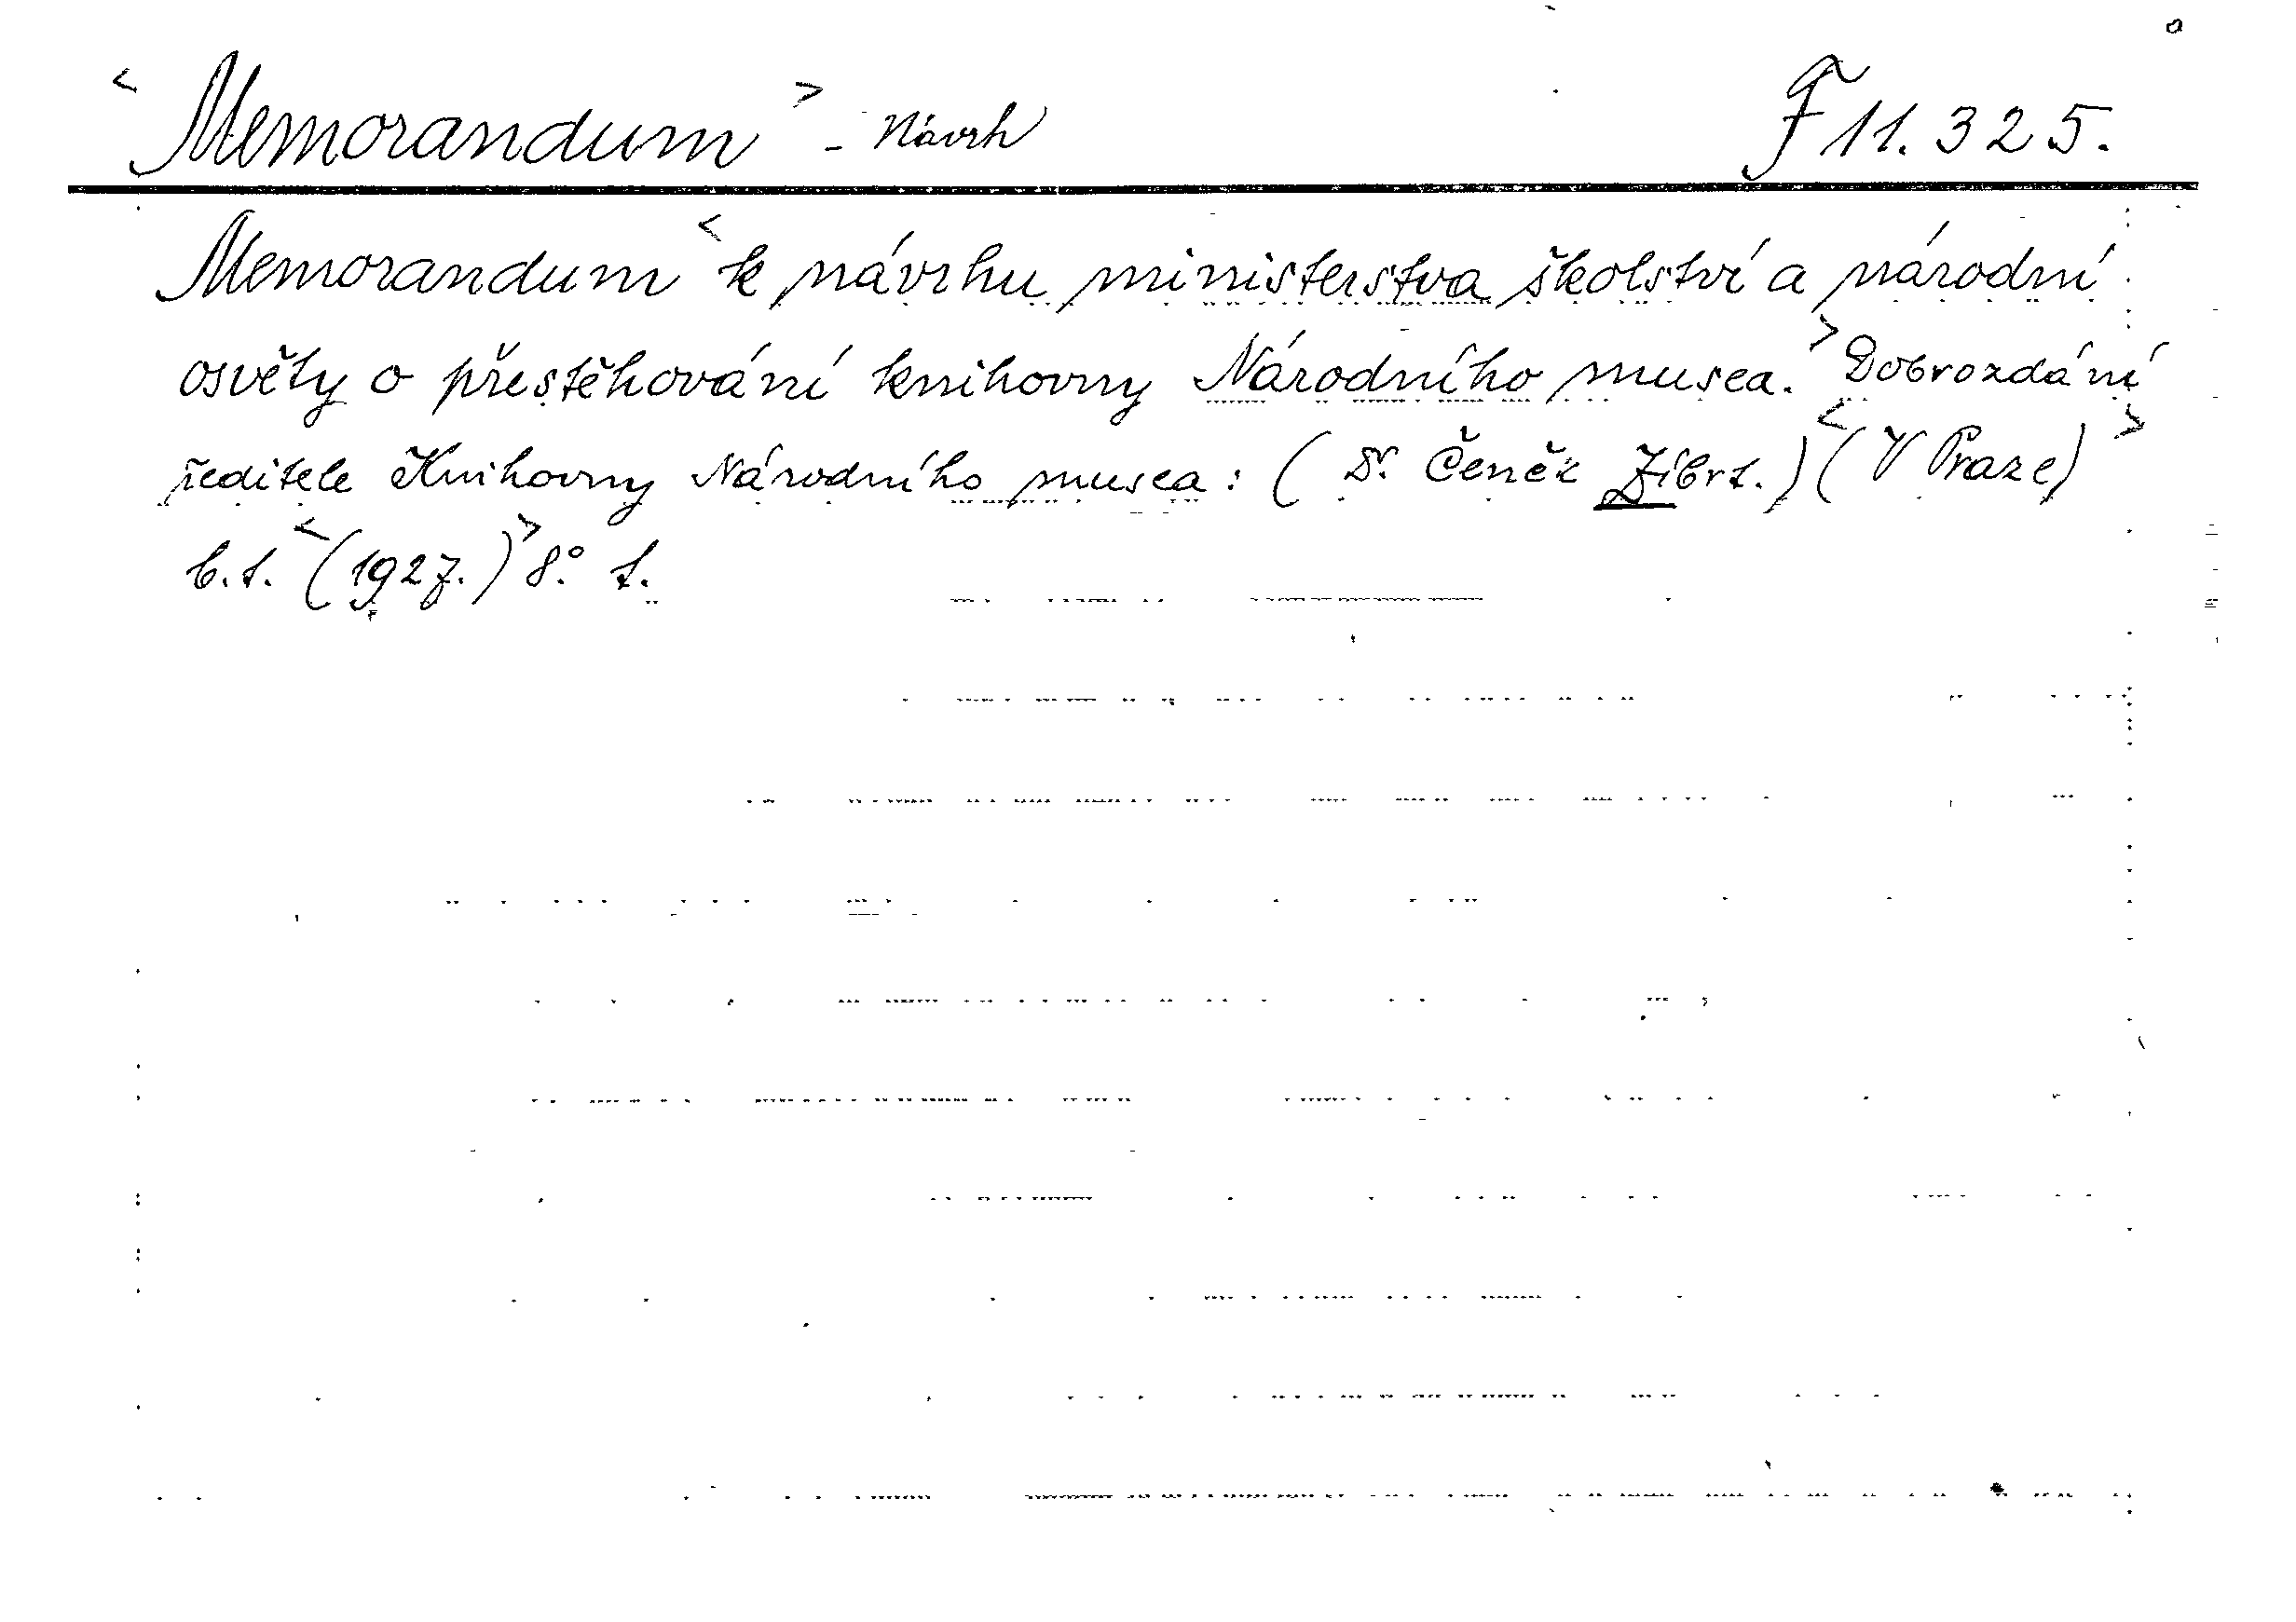 <Memorandum> - Návrh F 11.325.
Memorandum <k návrhu ministerstva školství a národní
osvěty o přestěhování knihovny Národního musea.> Dobrozdání
ředitele Knihovny Národního musea: (Dr. Čeněk Zíbrt.) <(V Praze)>
b.t. <(1927.)> 8°. t.